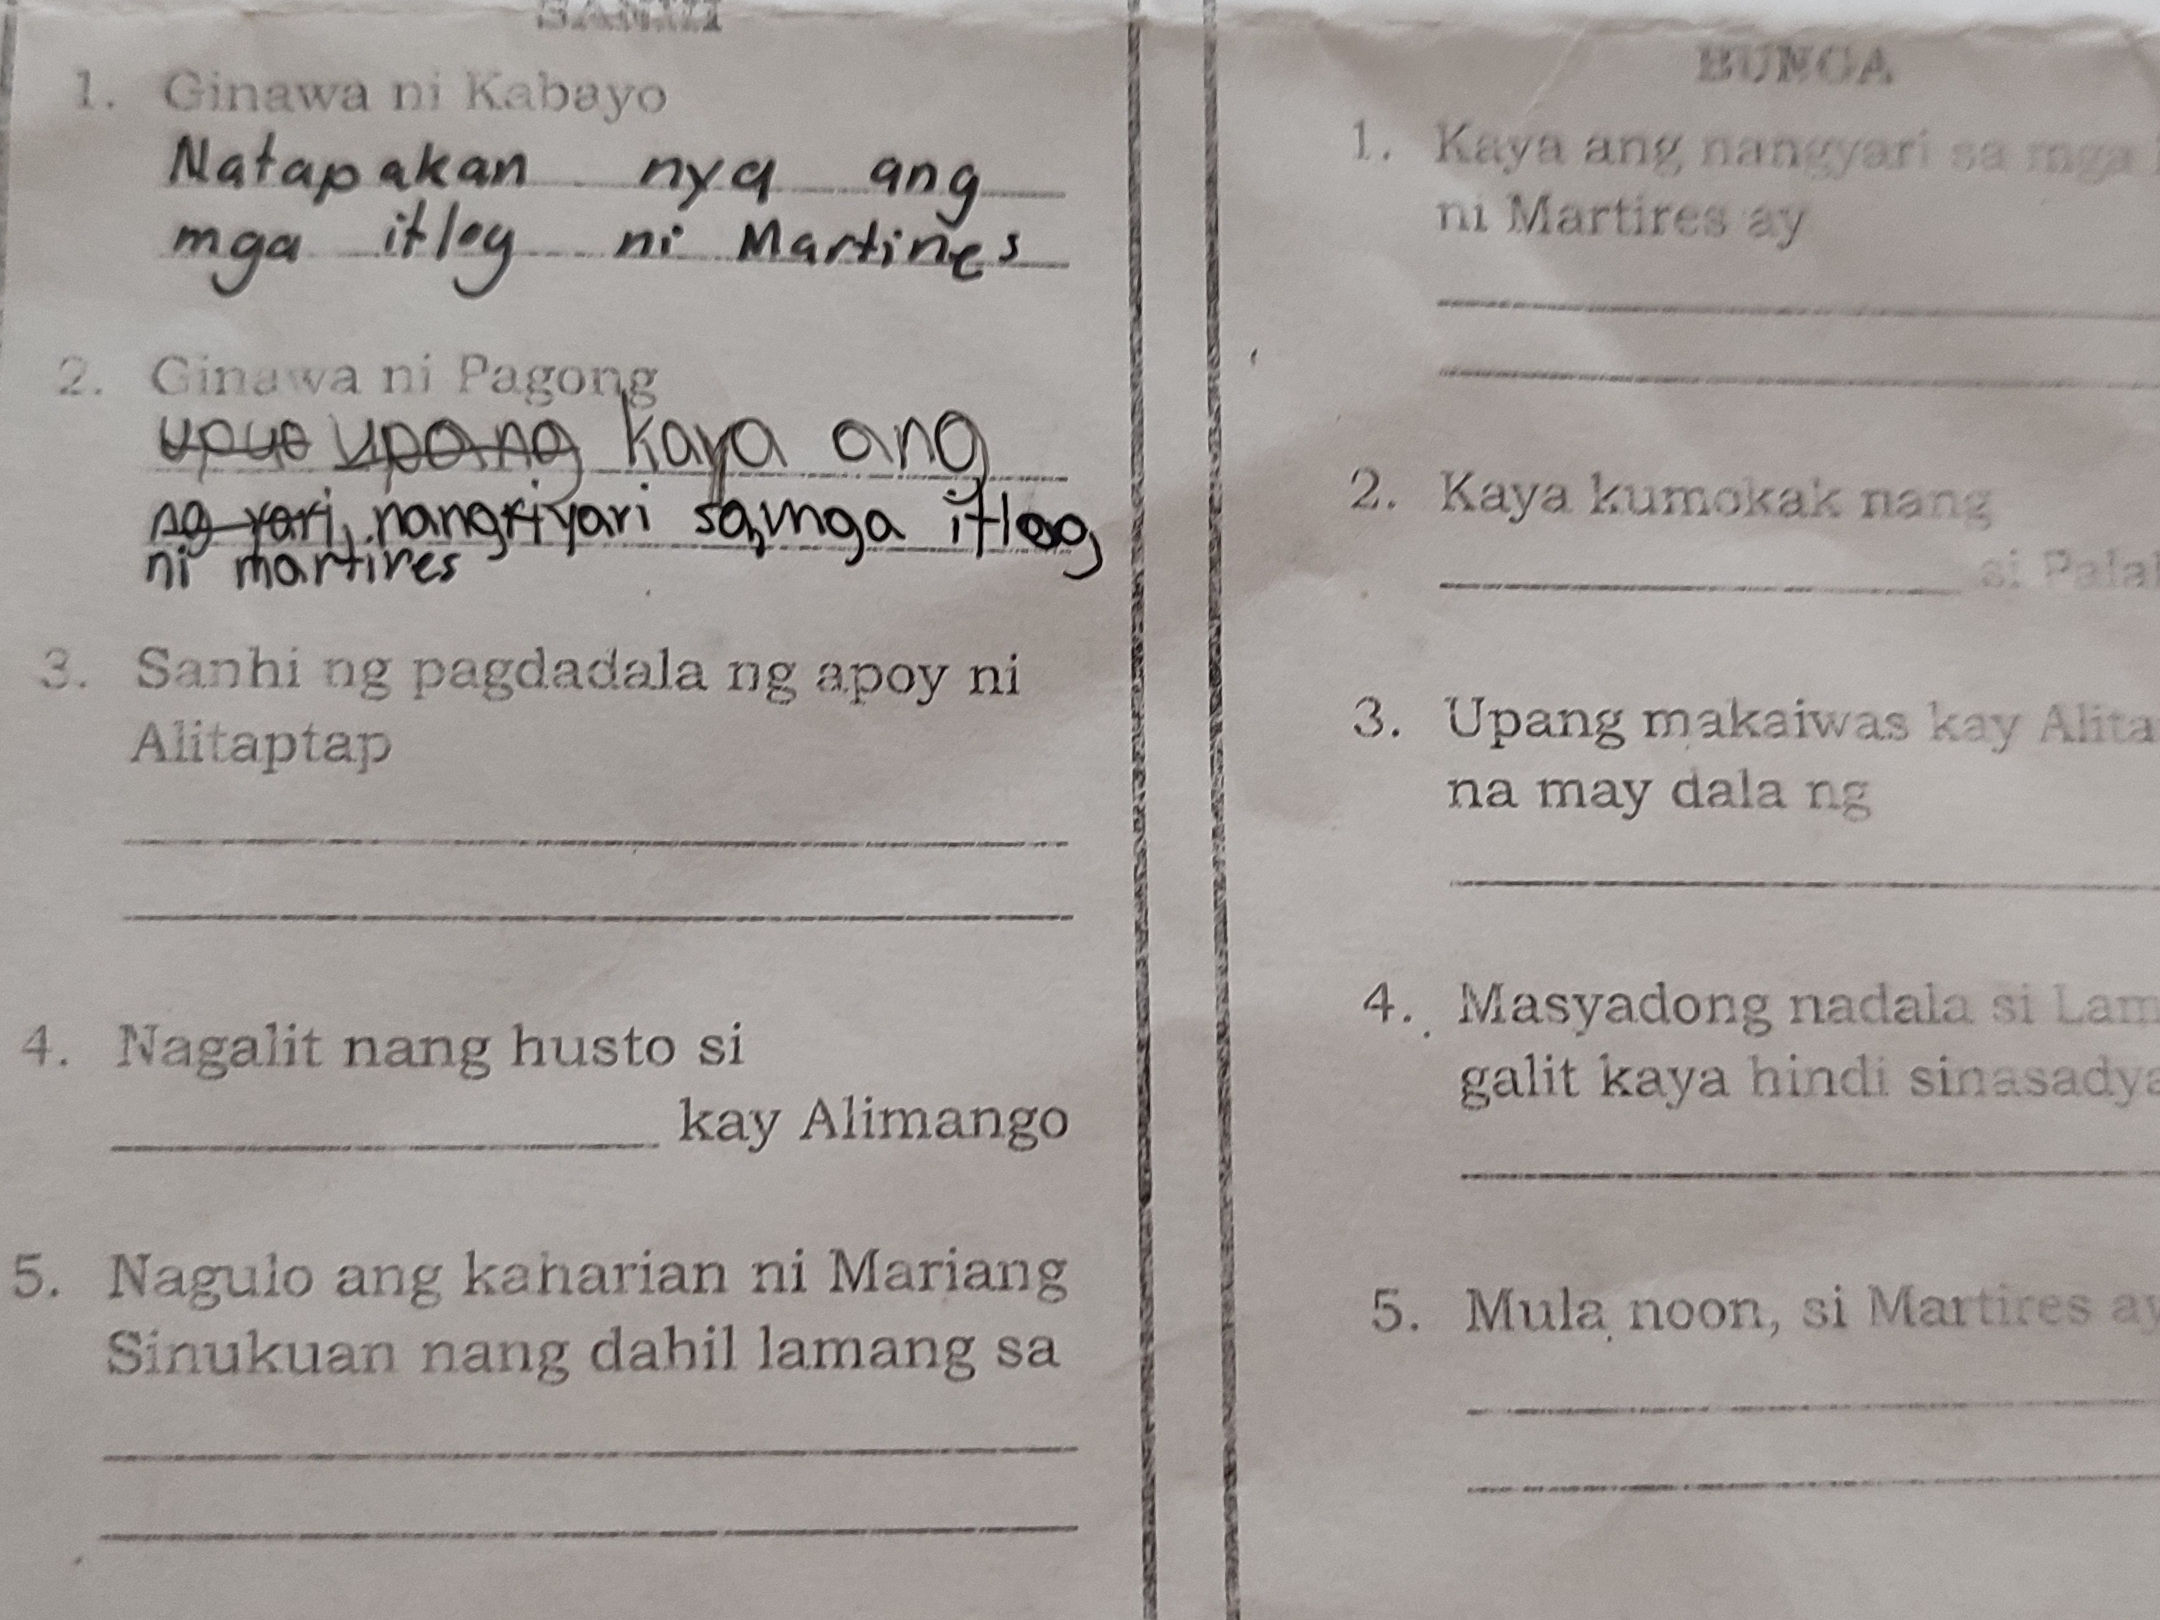 SANHI
1. Ginawa ni Kabayo
Natapakan nya ang
mga itlog ni Martines
2. Ginawa ni Pagong
upang kaya ang
ng yari, nangyari sa mga itlog
ni martires
3. Sanhi ng pagdadala ng apoy ni
Alitaptap
4. Nagalit nang husto si
kay Alimango
5. Nagulo ang kaharian ni Mariang
Sinukuan nang dahil lamang sa
BUNGA
1. Kaya ang nangyari sa mga
ni Martires ay
2. Kaya kumokak nang
si Pala
3. Upang makaiwas kay Alita
na may dala ng
4. Masyadong nadala si Lam
galit kaya hindi sinasadya
5. Mula noon, si Martires ay